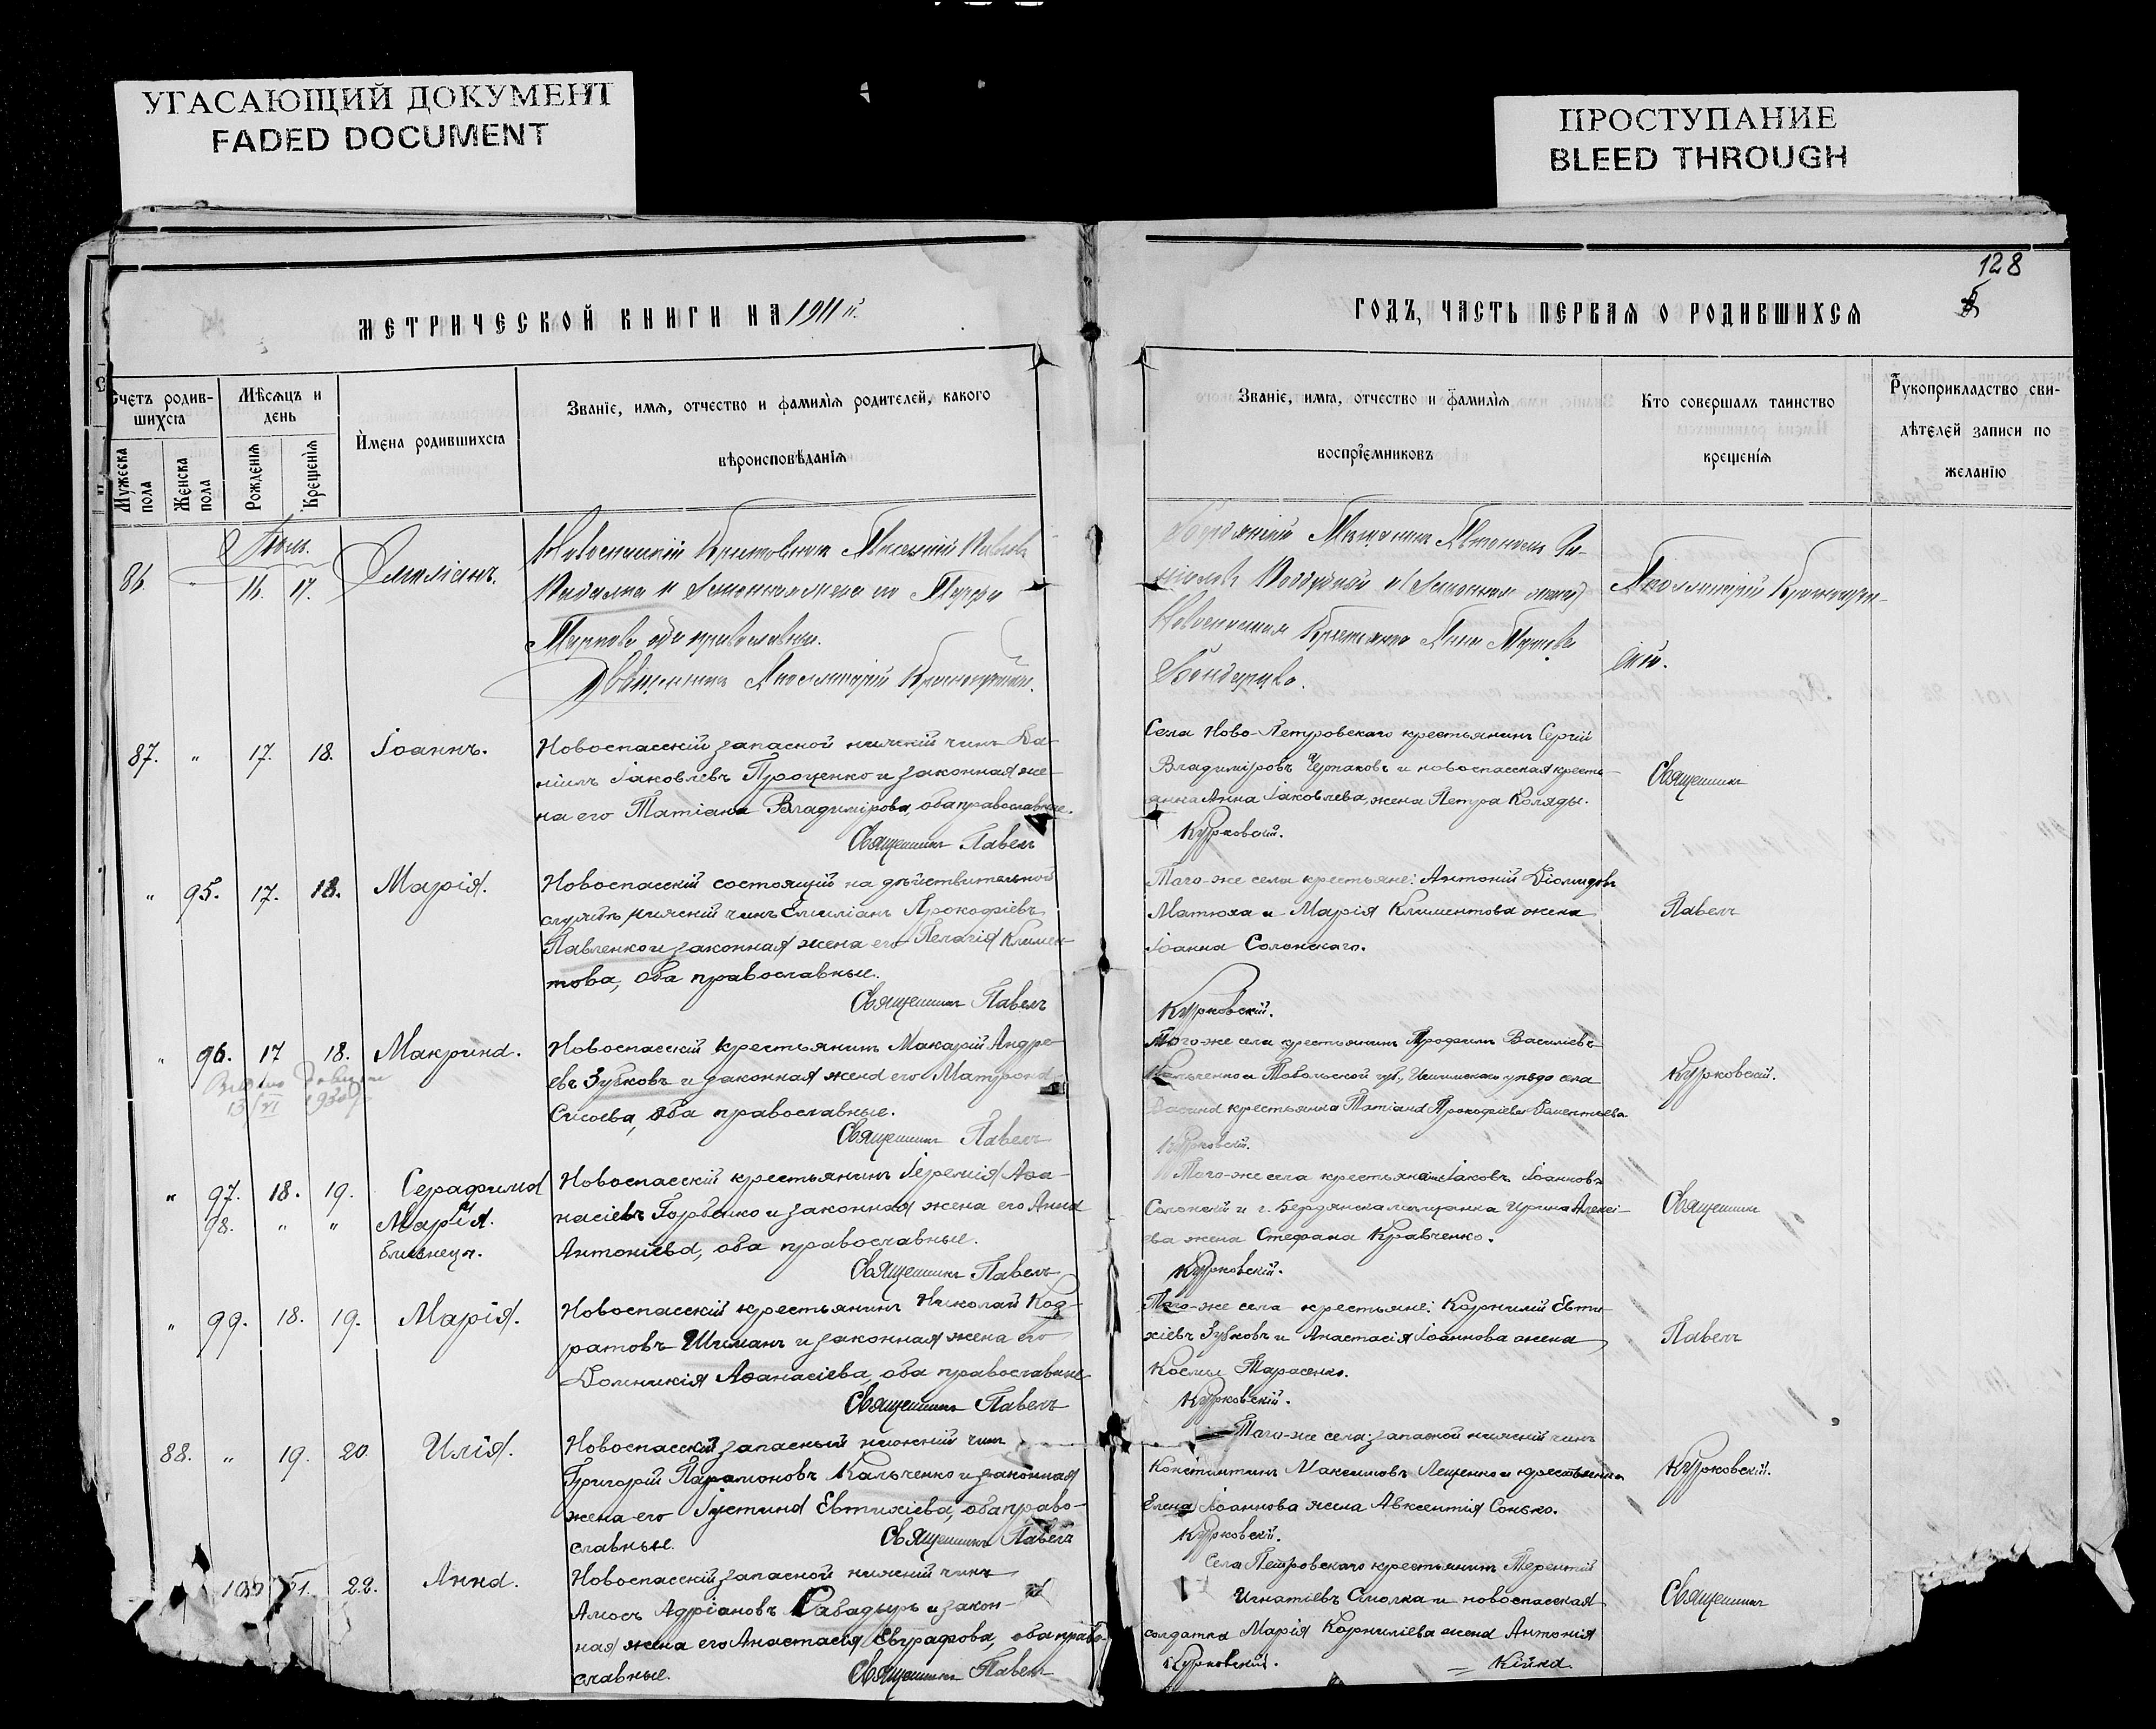 УГАСАЮЩИЙ ДОКУМЕНТ
FADED DOCUMENT
ПРОСТУПАНИЕ
BLEED THROUGH
128
МЕТРИЧЕСКОЙ КНИГИ НА 1911 й.
ГОДЪ, ЧАСТЬ ПЕРВАЯ О РОДИВШИХСЯ
Счетъ родив-
шихся
Мужеска
пола
Женска
пола
Мѣсяцъ и
день
Рожденія
Крещенія
Имена родившихся
Званіе, имя, отчество и фамилія родителей, какого
вѣроисповѣданія
Званіе, имя, отчество и фамилія
воспріемниковъ
Кто совершалъ таинство
крещенія
Рукоприкладство сви-
дѣтелей записи по
желанію
Іюль.
86. " 16. 17. Емиліанъ.
Маркова оба православны.
87. " 17. 18. Іоаннъ.
Новоспасскій запасной нижній чинъ Да-
ніилъ Іаковлевъ Проценко и законная же-
на его Татіана Владимірова, оба православные.
Священникъ Павелъ
Села Ново-Петровскаго крестьянинъ Сергій
Владиміровъ Черпаковъ и новоспасская кресть-
янка Анна Іаковлева, жена Петра Коляды.
Курковскій.
Священникъ
" 95. 17. 18. Марія.
Новоспасскій состоящій на дѣйствительной
службѣ нижній чинъ Емиліанъ Прокофіевъ
Павленко и законная жена его Пелагія Климен-
това, оба православные.
Священникъ Павелъ
Того-же села крестьяне: Антоній Діомидовъ
Матюха и Марія Климентова жена
Іоанна Солонскаго.
Курковскій.
Павелъ
" 96. 17 18. Макрина.
Новоспасскій крестьянинъ Макарій Андре-
евъ Зубковъ и законная жена его Матрона
Сисоева, оба православные.
Священникъ Павелъ
Того-же села крестьянинъ Трофимъ Василіевъ
Кальченко и Тобольской губ., Ишимскаго уѣзда села
крестьянка Татіана Прокофіева
Курковскій.
Курковскій.
" 97. 18. 19. Серафима
98. " " и Марія.
близнецы.
Новоспасскій крестьянинъ Іеремія Аѳа-
насіевъ Горбенко и законная жена его Анна
Антоніева, оба православные.
Священникъ Павелъ
Того-же села крестьянинъ Іаковъ Іоанновъ
Солонскій и г. Бердянска мѣщанка Ирина Алексі-
ева жена Стефана Кравченко.
Курковскій.
Священникъ
" 99. 18. 19. Марія.
Новоспасскій крестьянинъ Николай Код-
ратовъ Шиманъ и законная жена его
Домникія Аѳанасіева, оба православные
Священникъ Павелъ
Того-же села крестьяне: Корнилій Евти-
хіевъ Зубковъ и Анастасія Іоаннова жена
Космы Тарасенко.
Курковскій.
Павелъ
88. " 19. 20 Илія.
Новоспасскій запасный нижній чинъ
Григорій Парамоновъ Кальченко и законная
жена его Іустина Евтихіева, оба право-
славные. Священникъ Павелъ
Того-же села: запасной нижній чинъ
Константинъ Максимовъ Лещенко и крестьянка
Елена Іоаннова жена Авксентія Сонько.
Курковскій.
Курковскій.
100 21. 22. Анна.
Новоспасскій запасной нижній чинъ
Амосъ Адріановъ Сабадырь и закон-
ная жена его Анастасія Евграфова, оба право-
славные. Священникъ Павелъ
Села Петровскаго крестьянинъ Терентій
Игнатіевъ Смолка и новоспасская
солдатка Марія Корниліева жена Антонія
Курковскій. Кійка.
Священникъ